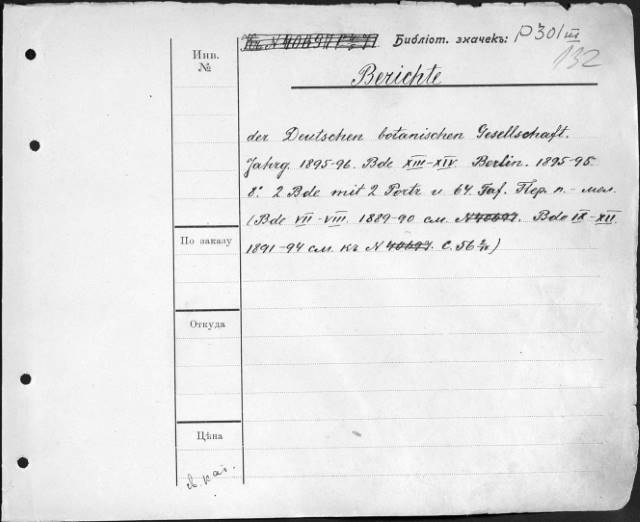 Библіот. значекъ: P301 III
132
Инв.
№
Berichte
der Deutschen botanischen Gesellschaft.
Jahrg. 1895-96. Bde XIII-XIV. Berlin. 1895-95.
8°. 2 Bde mit 2 Portr u 64. Taf. Пер. п.-мол.
(Bde VII-VIII. 1889-90 см. N40697. Bde IX-XII.
1891-94 см. къ N 40697. С. 56
По заказу
Откуда
Цѣна